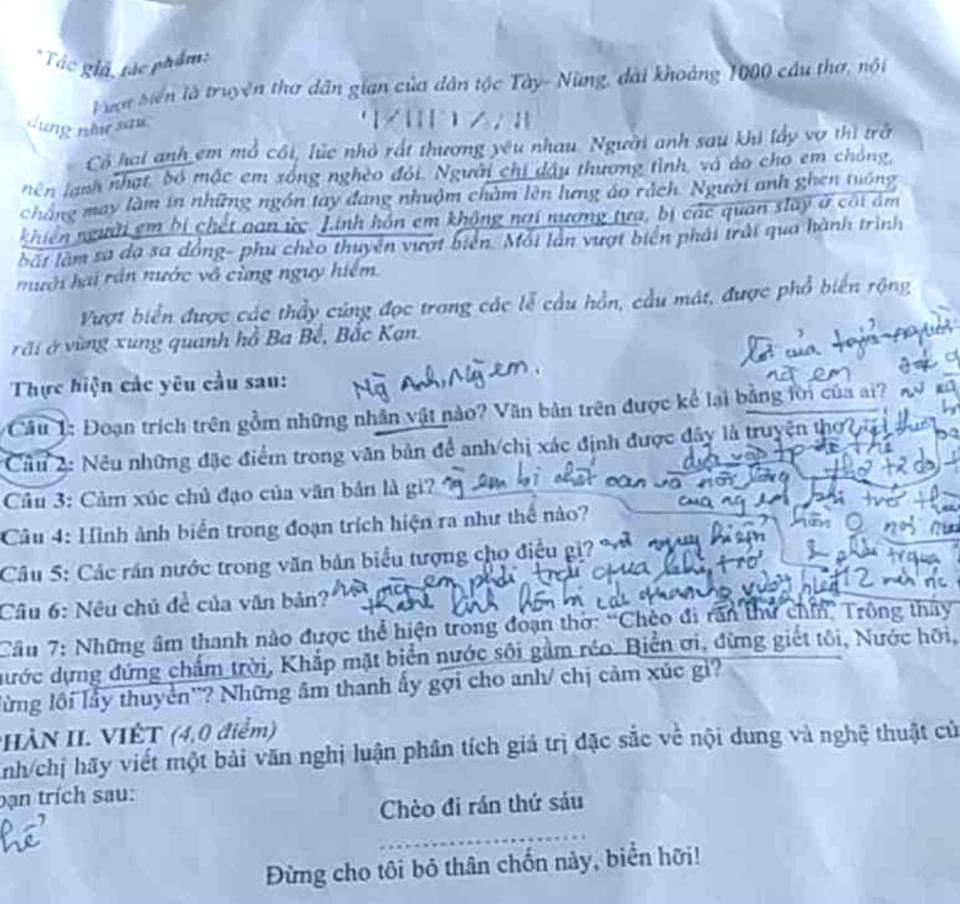 *Tác giả, tác phẩm:
Vượt biển là truyện thơ dân gian của dân tộc Tày- Nùng, dài khoảng 1000 câu thơ, nội
dung như sau:
Có hai anh em mồ côi, lúc nhỏ rất thương yêu nhau. Người anh sau khi lấy vợ thì trở
nên lạnh nhạt, bỏ mặc em sống nghèo đói. Người chị dâu thương tình, vá áo cho em chồng,
chẳng may làm in những ngón tay đang nhuộm chàm lên lưng áo rách. Người anh ghen tuông
khiến người em bị chết oan ức. Linh hồn em không nơi nương tựa, bị các quan slay ở cõi âm
bắt làm sa dạ sa dồng- phu chèo thuyền vượt biển. Mỗi lần vượt biển phải trải qua hành trình
mười hai rán nước vô cùng nguy hiểm.
Vượt biển được các thầy cúng đọc trong các lễ cầu hồn, cầu mát, được phổ biến rộng
rãi ở vùng xung quanh hồ Ba Bể, Bắc Kạn.
Thực hiện các yêu cầu sau: Ng anh, ng em.
lời của
ng em
Câu 1: Đoạn trích trên gồm những nhân vật nào? Văn bản trên được kể lại bằng lời của ai?
Câu 2: Nêu những đặc điểm trong văn bản để anh/chị xác định được đây là truyện thơ
Câu 3: Cảm xúc chủ đạo của văn bản là gì? ng em bị chết oan và nỗi lòng
của ng em khi trở
Câu 4: Hình ảnh biển trong đoạn trích hiện ra như thế nào?
Câu 5: Các rán nước trong văn bản biểu tượng cho điều gì? nguy hiểm
em phải trải qua khi trở
Câu 6: Nêu chủ đề của văn bản?
thành linh hồn bị các quan vượt biển 12
Câu 7: Những âm thanh nào được thể hiện trong đoạn thơ: "Chèo đi rán thứ chín, Trông thấy
nước dựng đứng chấm trời, Khắp mặt biển nước sôi gầm réo. Biển ơi, đừng giết tôi, Nước hỡi,
đừng lôi lấy thuyền"? Những âm thanh ấy gợi cho anh/ chị cảm xúc gì?
PHẦN II. VIẾT (4,0 điểm)
Anh/chị hãy viết một bài văn nghị luận phân tích giá trị đặc sắc về nội dung và nghệ thuật củ
đoạn trích sau:
Chèo đi rán thứ sáu
................................
Đừng cho tôi bỏ thân chốn này, biển hỡi!